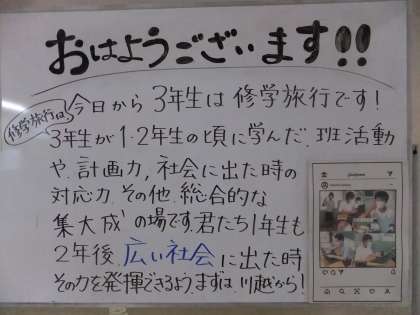 おはようございます!!
修学旅行は
今日から3年生は修学旅行です!
3年生が1・2年生の頃に学んだ、班活動
や、計画力、社会に出た時の
対応力、その他、総合的な
集大成の場です。君たち1年生も
2年後、広い社会に出た時
その力を発揮できるよう、まずは、川越から!